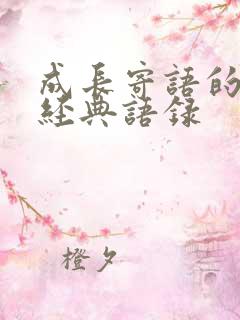 成長寄語的
經典語錄
橙夕